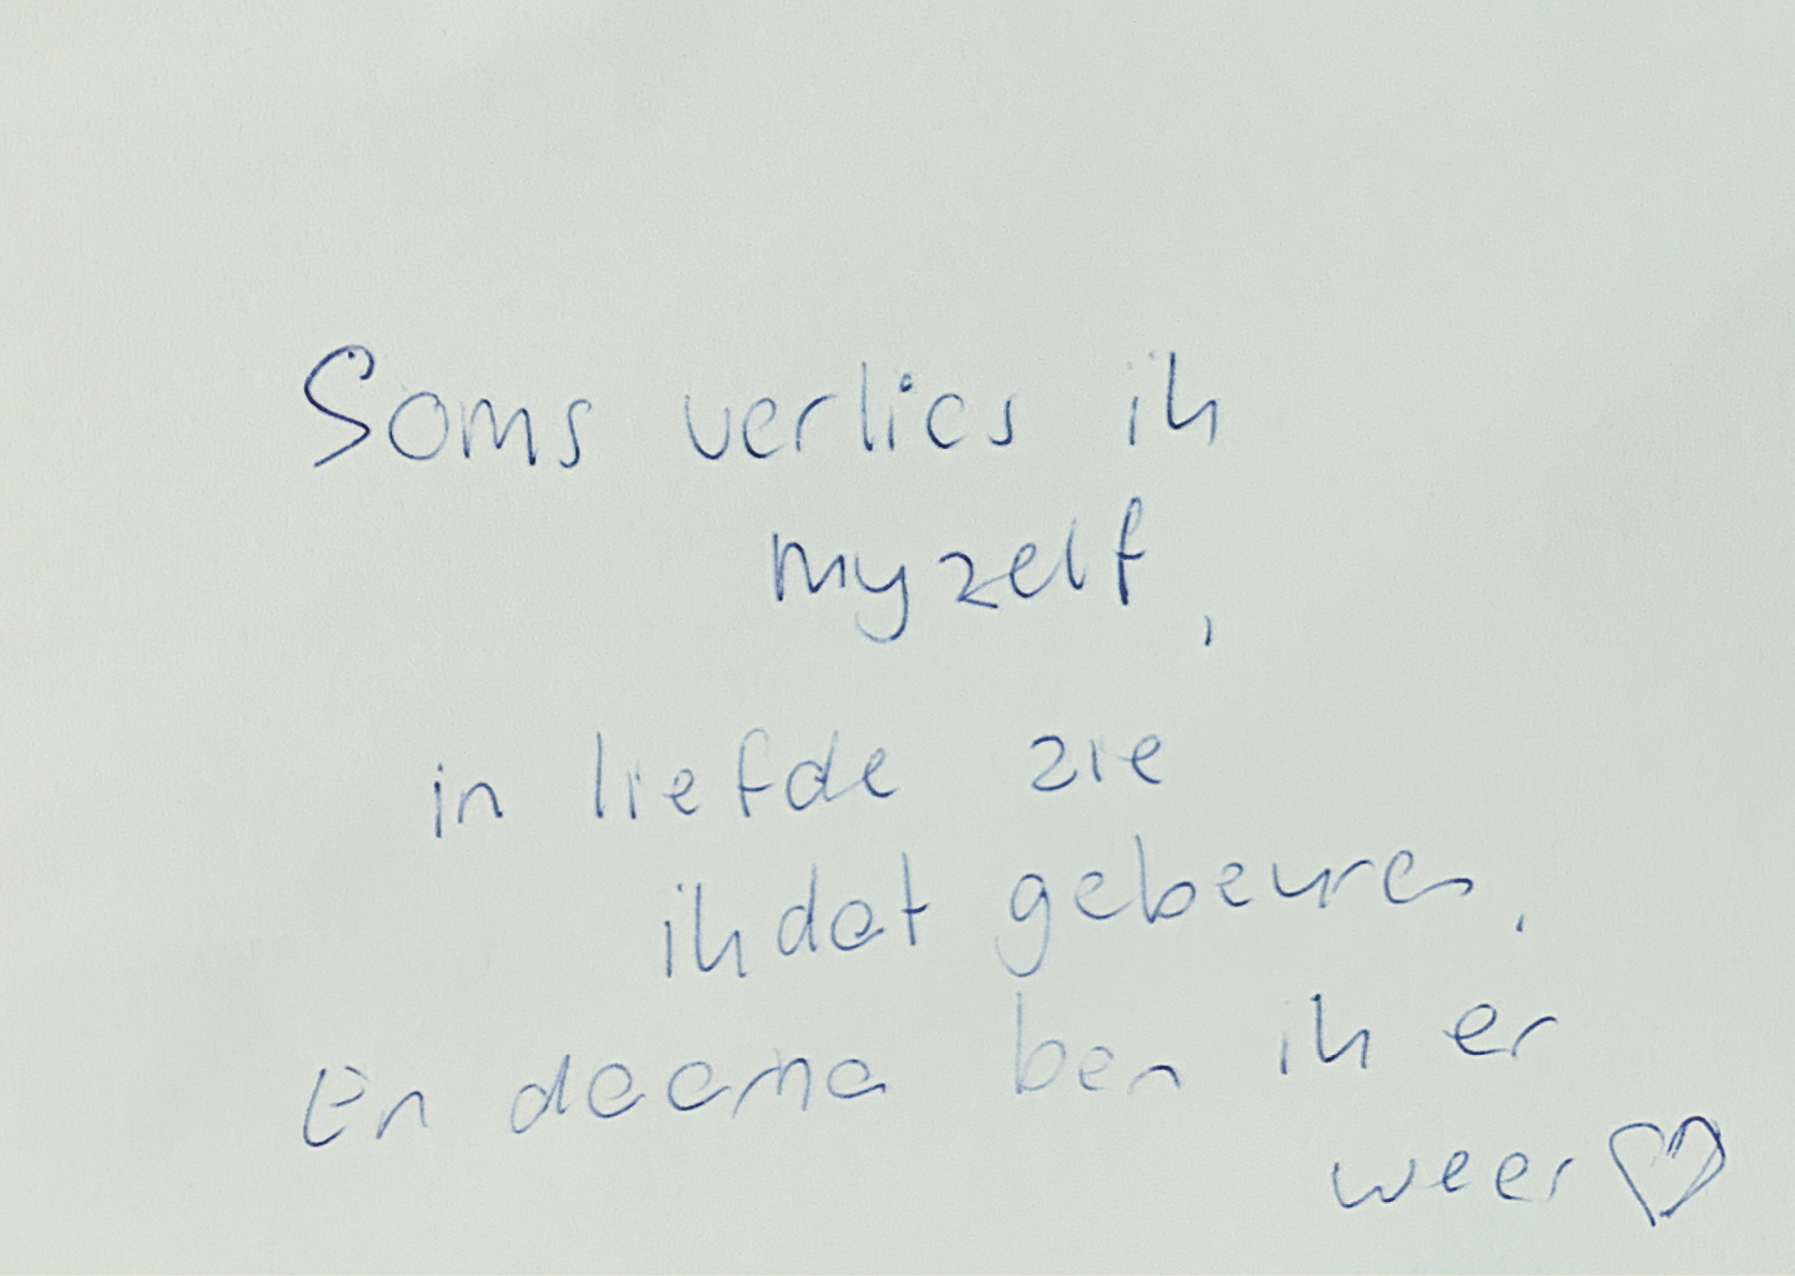 Soms verlies ik
mijzelf,
in liefde zie
ik dat gebeuren.
En daarna ben ik er
weer ♡